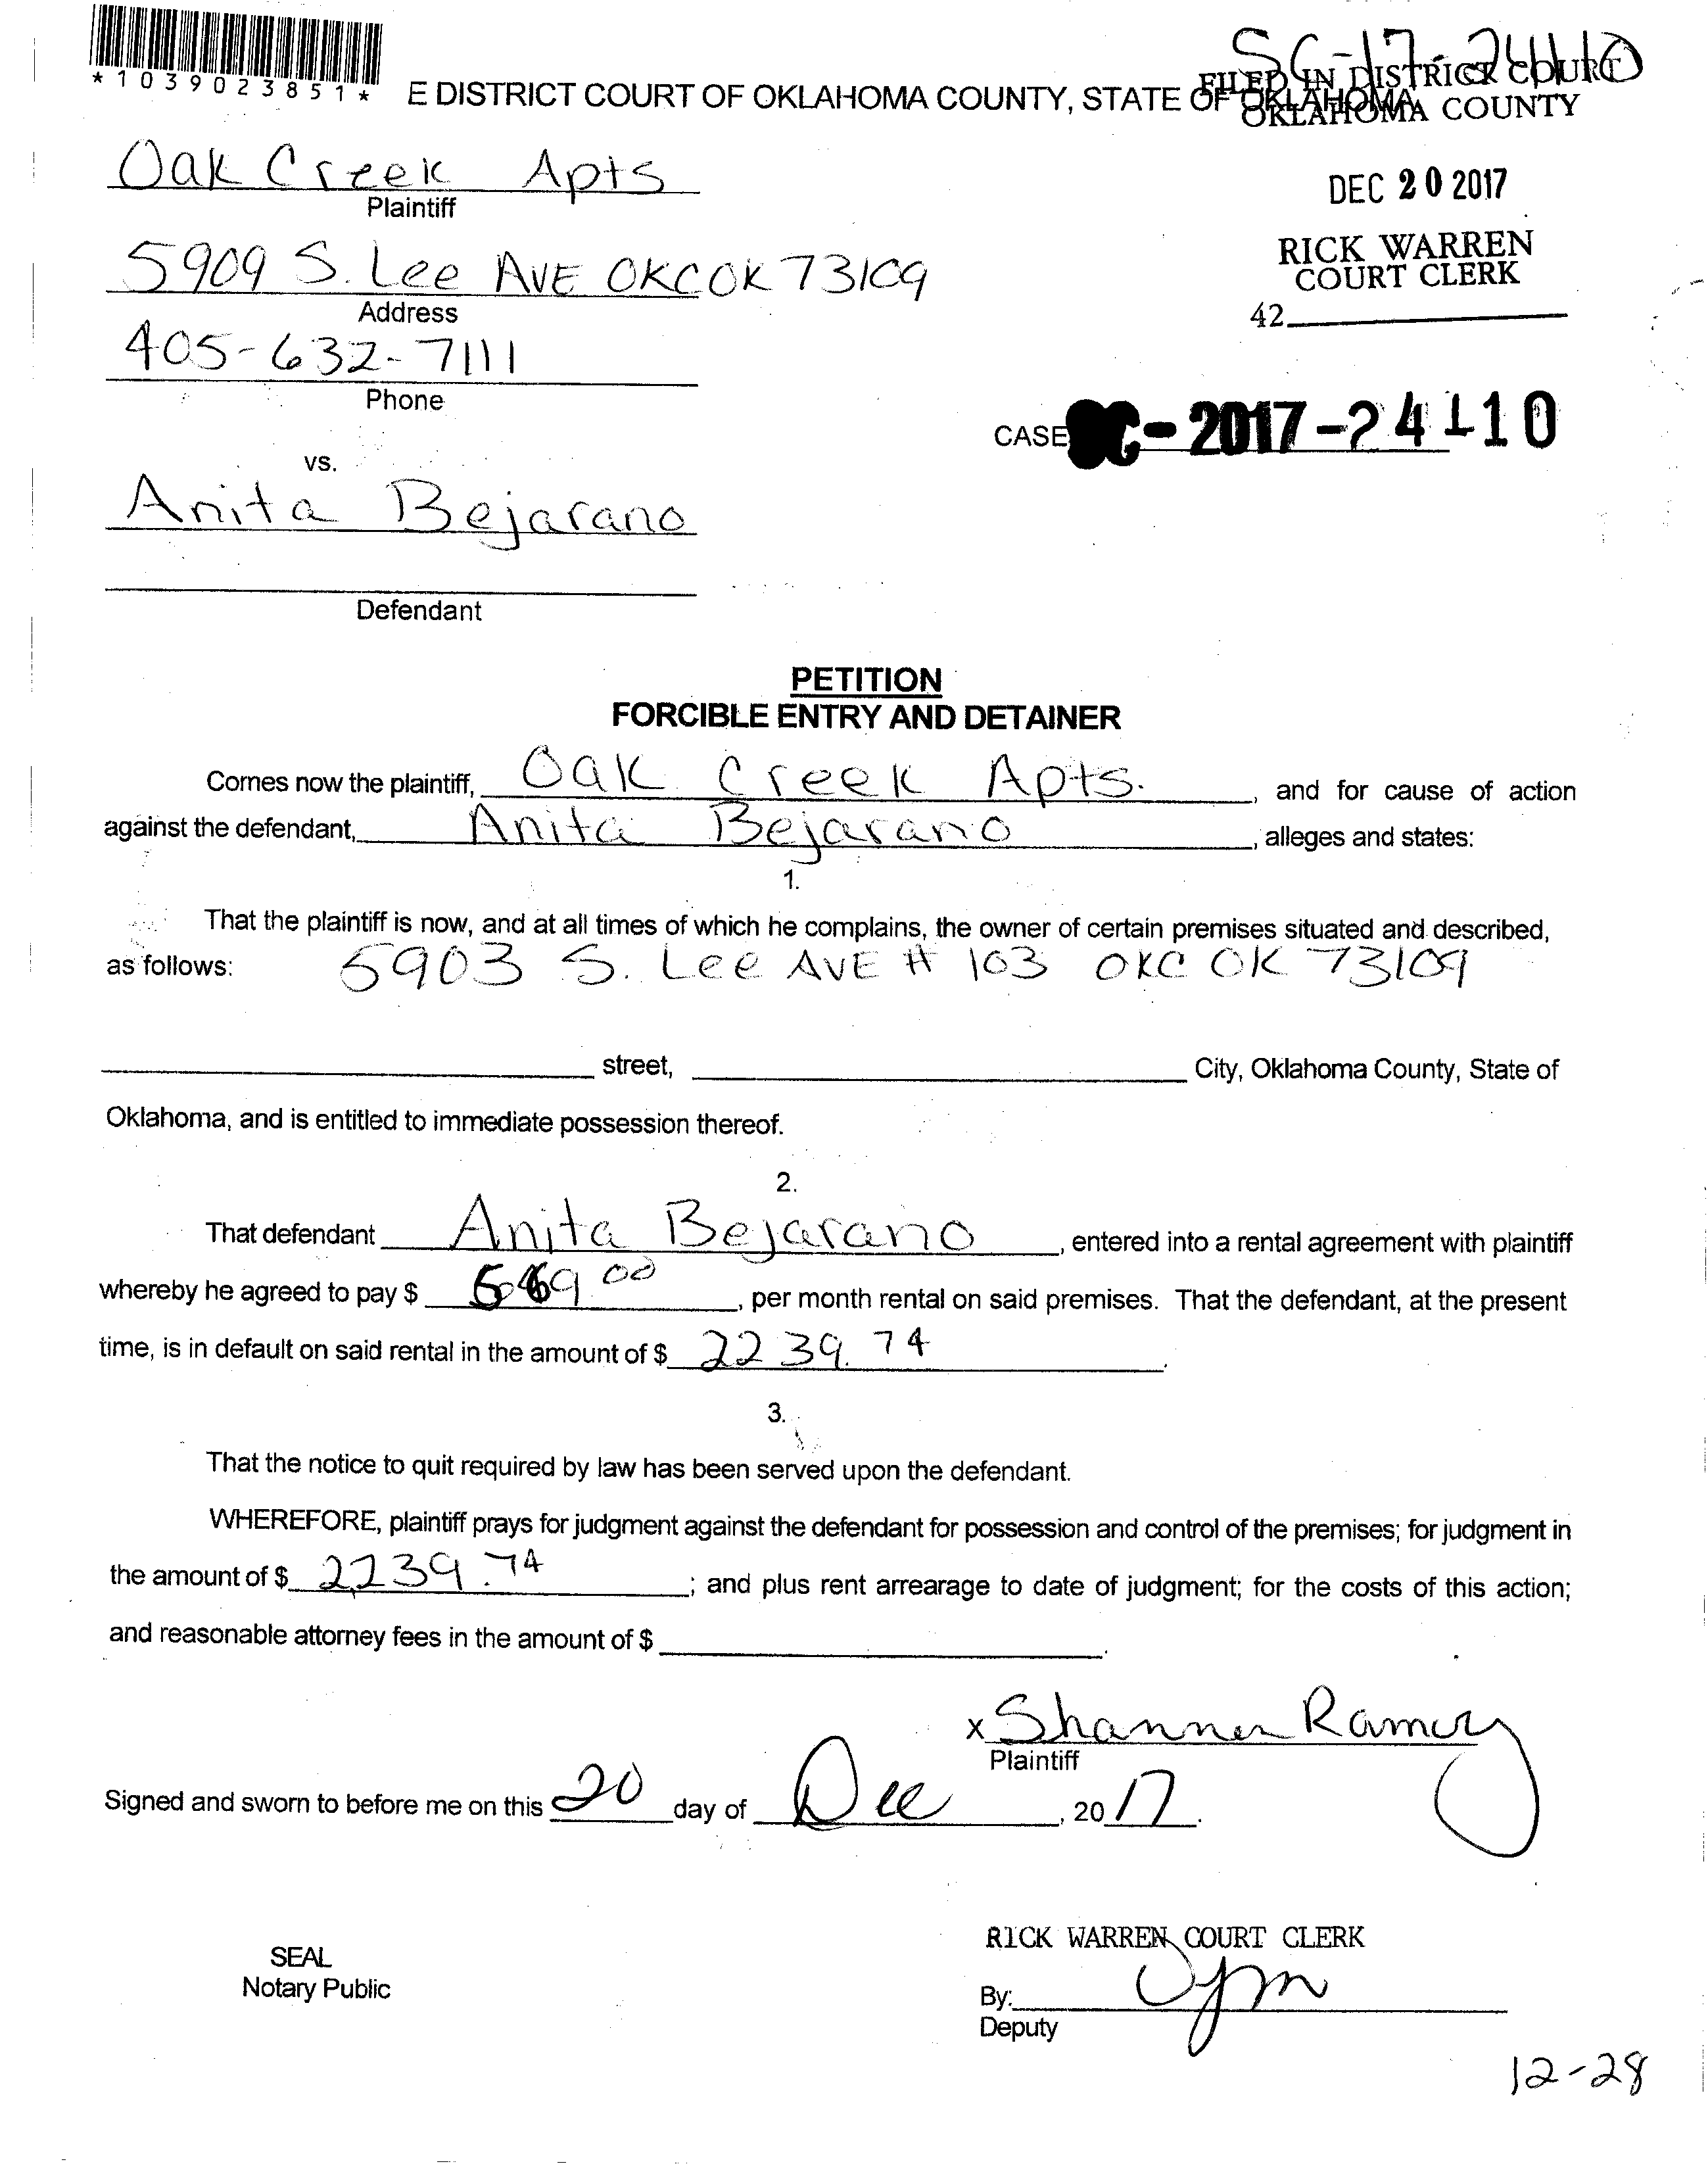 SC-17-24110
*1039023851*
E DISTRICT COURT OF OKLAHOMA COUNTY, STATE OF OKLAHOMA
FILED IN DISTRICT COURT
OKLAHOMA COUNTY
Oak Creek Apts
Plaintiff
DEC 20 2017
5909 S. Lee AVE OKC OK 73109
Address
RICK WARREN
COURT CLERK
42
405-632-7111
Phone
CASE SC-2017-24110
vs.
Anita Bejarano
Defendant
PETITION
FORCIBLE ENTRY AND DETAINER
Comes now the plaintiff, Oak Creek Apts. , and for cause of action
against the defendant, Anita Bejarano , alleges and states:
1.
That the plaintiff is now, and at all times of which he complains, the owner of certain premises situated and described,
as follows: 5903 S. Lee AVE # 103 OKC OK 73109
street, City, Oklahoma County, State of
Oklahoma, and is entitled to immediate possession thereof.
2.
That defendant Anita Bejarano , entered into a rental agreement with plaintiff
whereby he agreed to pay $ , per month rental on said premises. That the defendant, at the present
time, is in default on said rental in the amount of $ 2239.74 .
3.
That the notice to quit required by law has been served upon the defendant.
WHEREFORE, plaintiff prays for judgment against the defendant for possession and control of the premises; for judgment in
the amount of $ 2239.74 ; and plus rent arrearage to date of judgment; for the costs of this action;
and reasonable attorney fees in the amount of $ .
x Shannon Ramey
Plaintiff
Signed and sworn to before me on this 20 day of Dec , 20 17 .
SEAL
Notary Public
RICK WARREN COURT CLERK
By:
Deputy
12-28